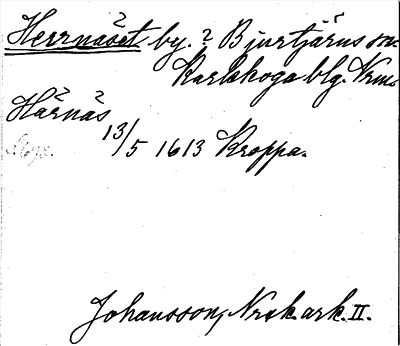 Herrnäset by. ? Bjurtjärns sn.
Karlskoga blg. Vrml.
Härnäs
13/5 1613 Kroppa.
Johansson, Nrsk. ark. II.